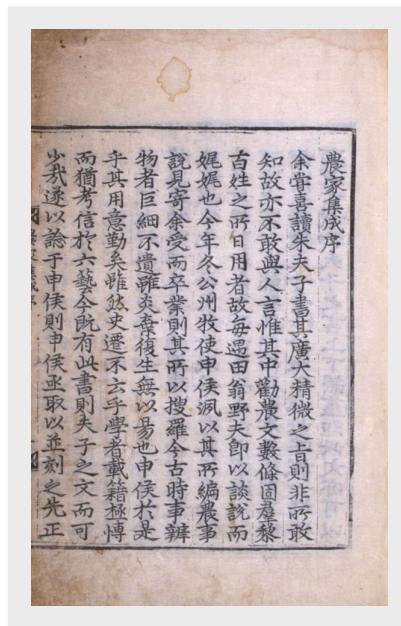 農家集成序
余嘗喜讀朱夫子書其廣大精微之旨則非所敢
知故亦不敢與人言惟其中勸農文數條固羣黎
百姓之所日用者故每遇田翁野夫卽以談說而
娓娓也今年冬公州牧使申侯洬以其所編農事
說見寄余受而卒業則其所以搜羅今古時事辨
物者巨細不遺雖炎棄復生無以易也申侯於是
乎其用意勤矣雖然史遷不云乎學者載籍極博
而猶考信於六藝今旣有此書則夫子之文而可
少哉遂以諗于申侯則申侯亟取以並刻之先正
農家集成序